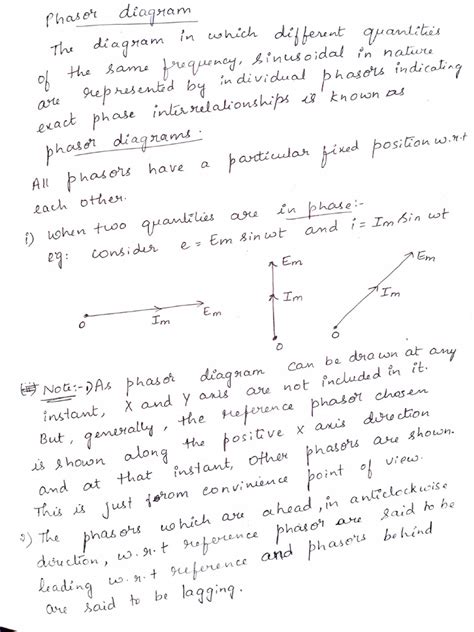 Phasor diagram
The diagram in which different quantities
of the same frequency, sinusoidal in nature
are represented by individual phasors indicating
exact phase interrelationships is known as
phasor diagrams.
All phasors have a particular fixed position w.r.t
each other.
i) when two quantities are in phase:-
eg: consider e = Em sin wt and i = Im sin wt
O Im Em
Em
Im
O
Em
Im
O
Note:- 1) As phasor diagram can be drawn at any
instant, X and Y axis are not included in it.
But, generally, the reference phasor chosen
is shown along the positive x axis direction
and at that instant, other phasors are shown.
This is just from convinience point of view.
2) The phasors which are ahead, in anticlockwise
direction, w.r.t reference phasor are said to be
leading w.r.t reference and phasors behind
are said to be lagging.